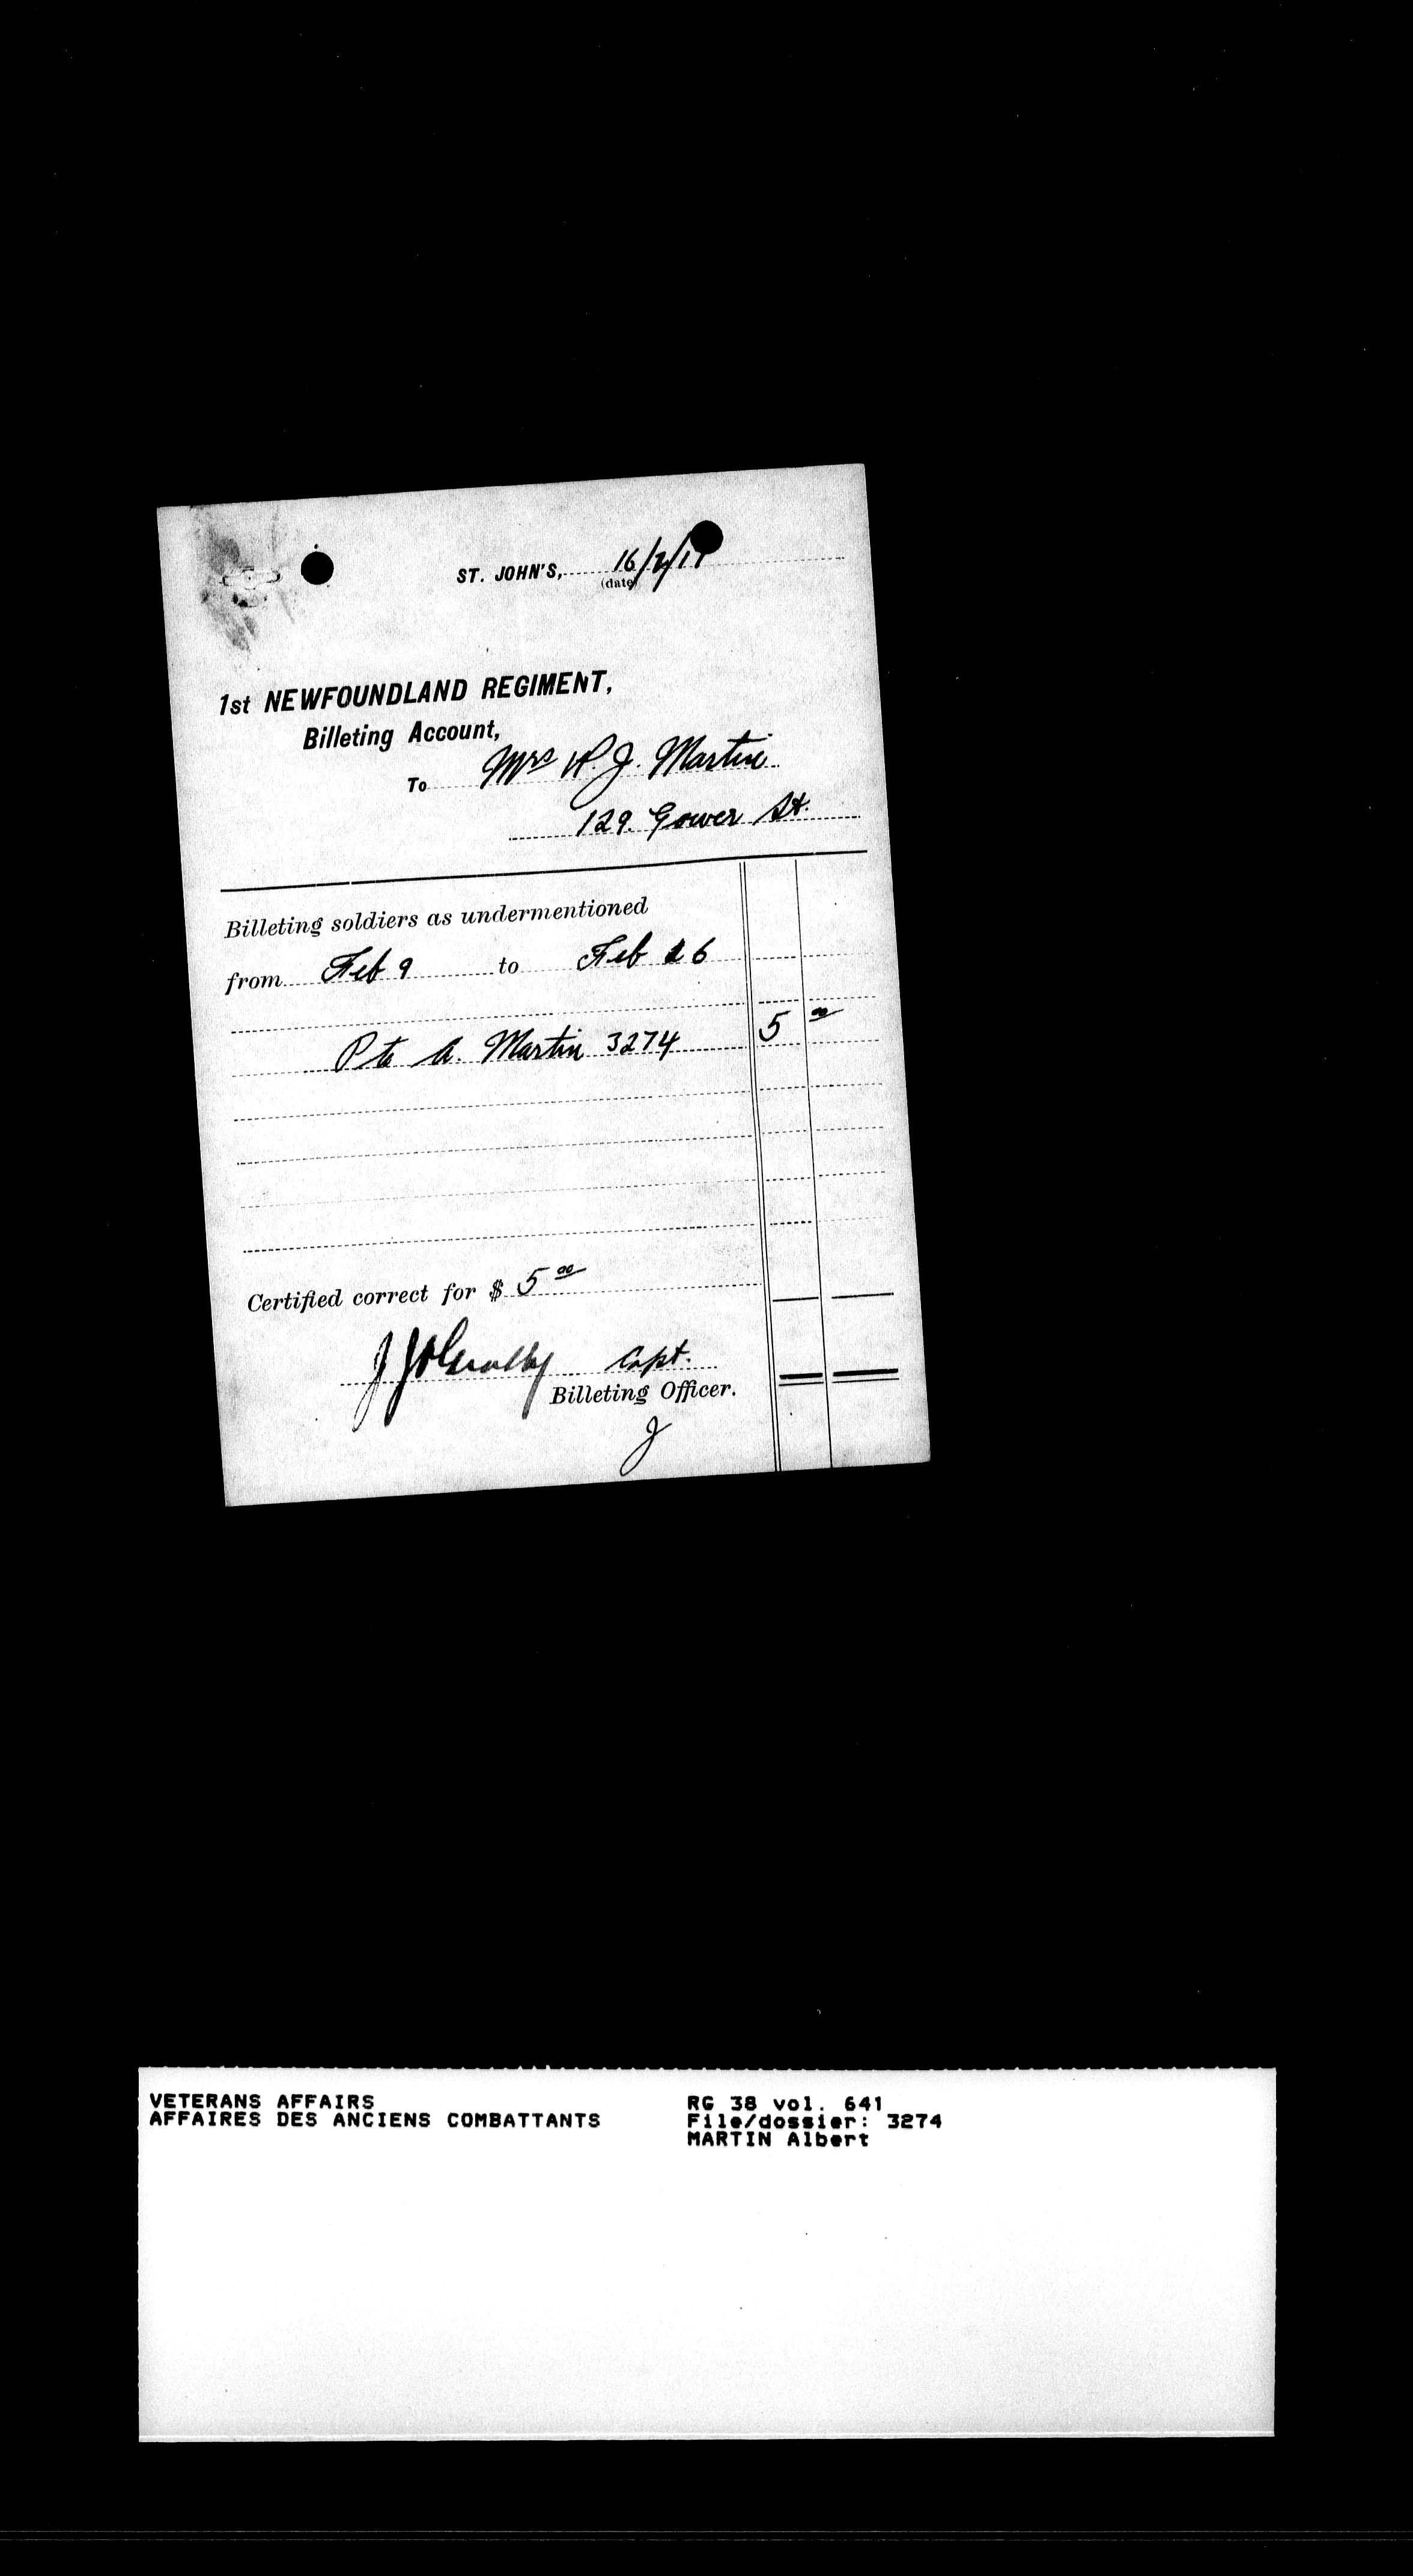 ST. JOHN'S, 16/2/17
(date)
1st NEWFOUNDLAND REGIMENT,
Billeting Account,
To Mrs H. J. Martin
129 Gower St.
Billeting soldiers as undermentioned
from Feb 9 to Feb 16
Pte A. Martin 3274 5 00
Certified correct for $ 5 00
Capt.
Billeting Officer.
VETERANS AFFAIRS
AFFAIRES DES ANCIENS COMBATTANTS
RG 38 vol. 641
File/dossier: 3274
MARTIN Albert